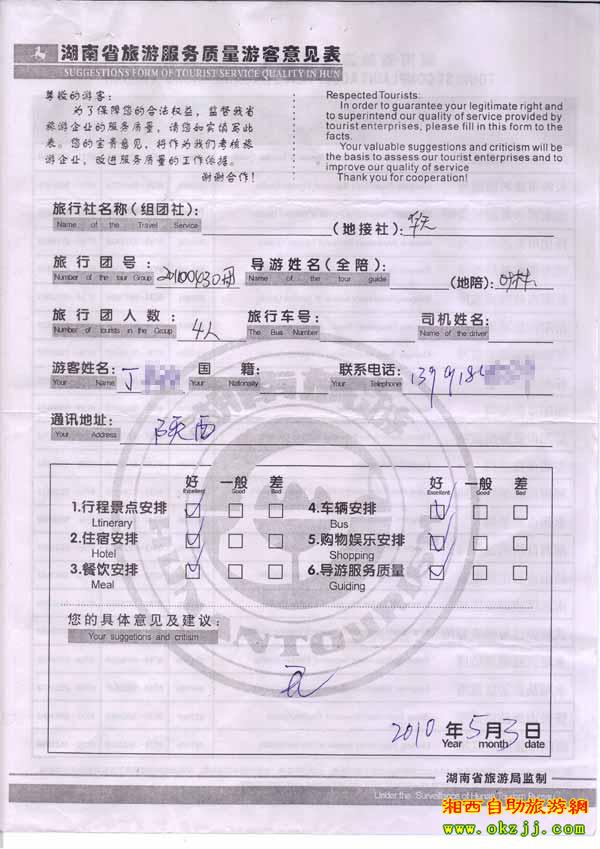 湖南省旅游服务质量游客意见表
SUGGESTIONS FORM OF TOURIST SERVICE QUALITY IN HUN
尊敬的游客:
为了保障您的合法权益，监督我省
旅游企业的服务质量，请您如实填写此
表。您的宝贵意见，将作为我们考核旅
游企业、改进服务质量的工作依据。
谢谢合作!
Respected Tourists:
In order to guarantee your legitimate right and
to superintend our quality of service provided by
tourist enterprises, please fill in this form to the
facts.
Your valuable suggestions and criticism will be
the basis to assess our tourist enterprises and to
improve our quality of service
Thank you for cooperation!
旅行社名称(组团社): (地接社):
Name of the Travel Service
旅行团号: 20100430 导游姓名(全陪): (地陪):
Number of the tour Group Name of the tour guide
旅行团人数: 4人 旅行车号: 司机姓名:
Number of tourists in the Group The Bus Number Name of the driver
游客姓名: 丁 国籍: 联系电话: 139918
Your Name Your Nationality Your Telephone
通讯地址: 陕西
Your Address
好 一般 差 好 一般 差
Excellent Good Bad Excellent Good Bad
1.行程景点安排 4.车辆安排
Ltinerary Bus
2.住宿安排 5.购物娱乐安排
Hotel Shopping
3.餐饮安排 6.导游服务质量
Meal Guiding
您的具体意见及建议:
Your suggetions and critism
无
2010 年 5 月 3 日
Year month date
HUNANTourism
湖南省旅游局监制
Under the Surveillance of Hunan Tourism Bureau
湘西自助旅游網
www.okzjj.com